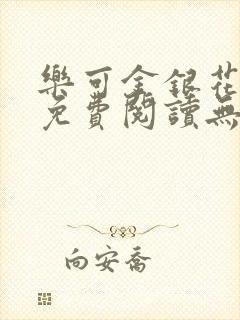 樂可金銀花
免費閱讀無
向安喬